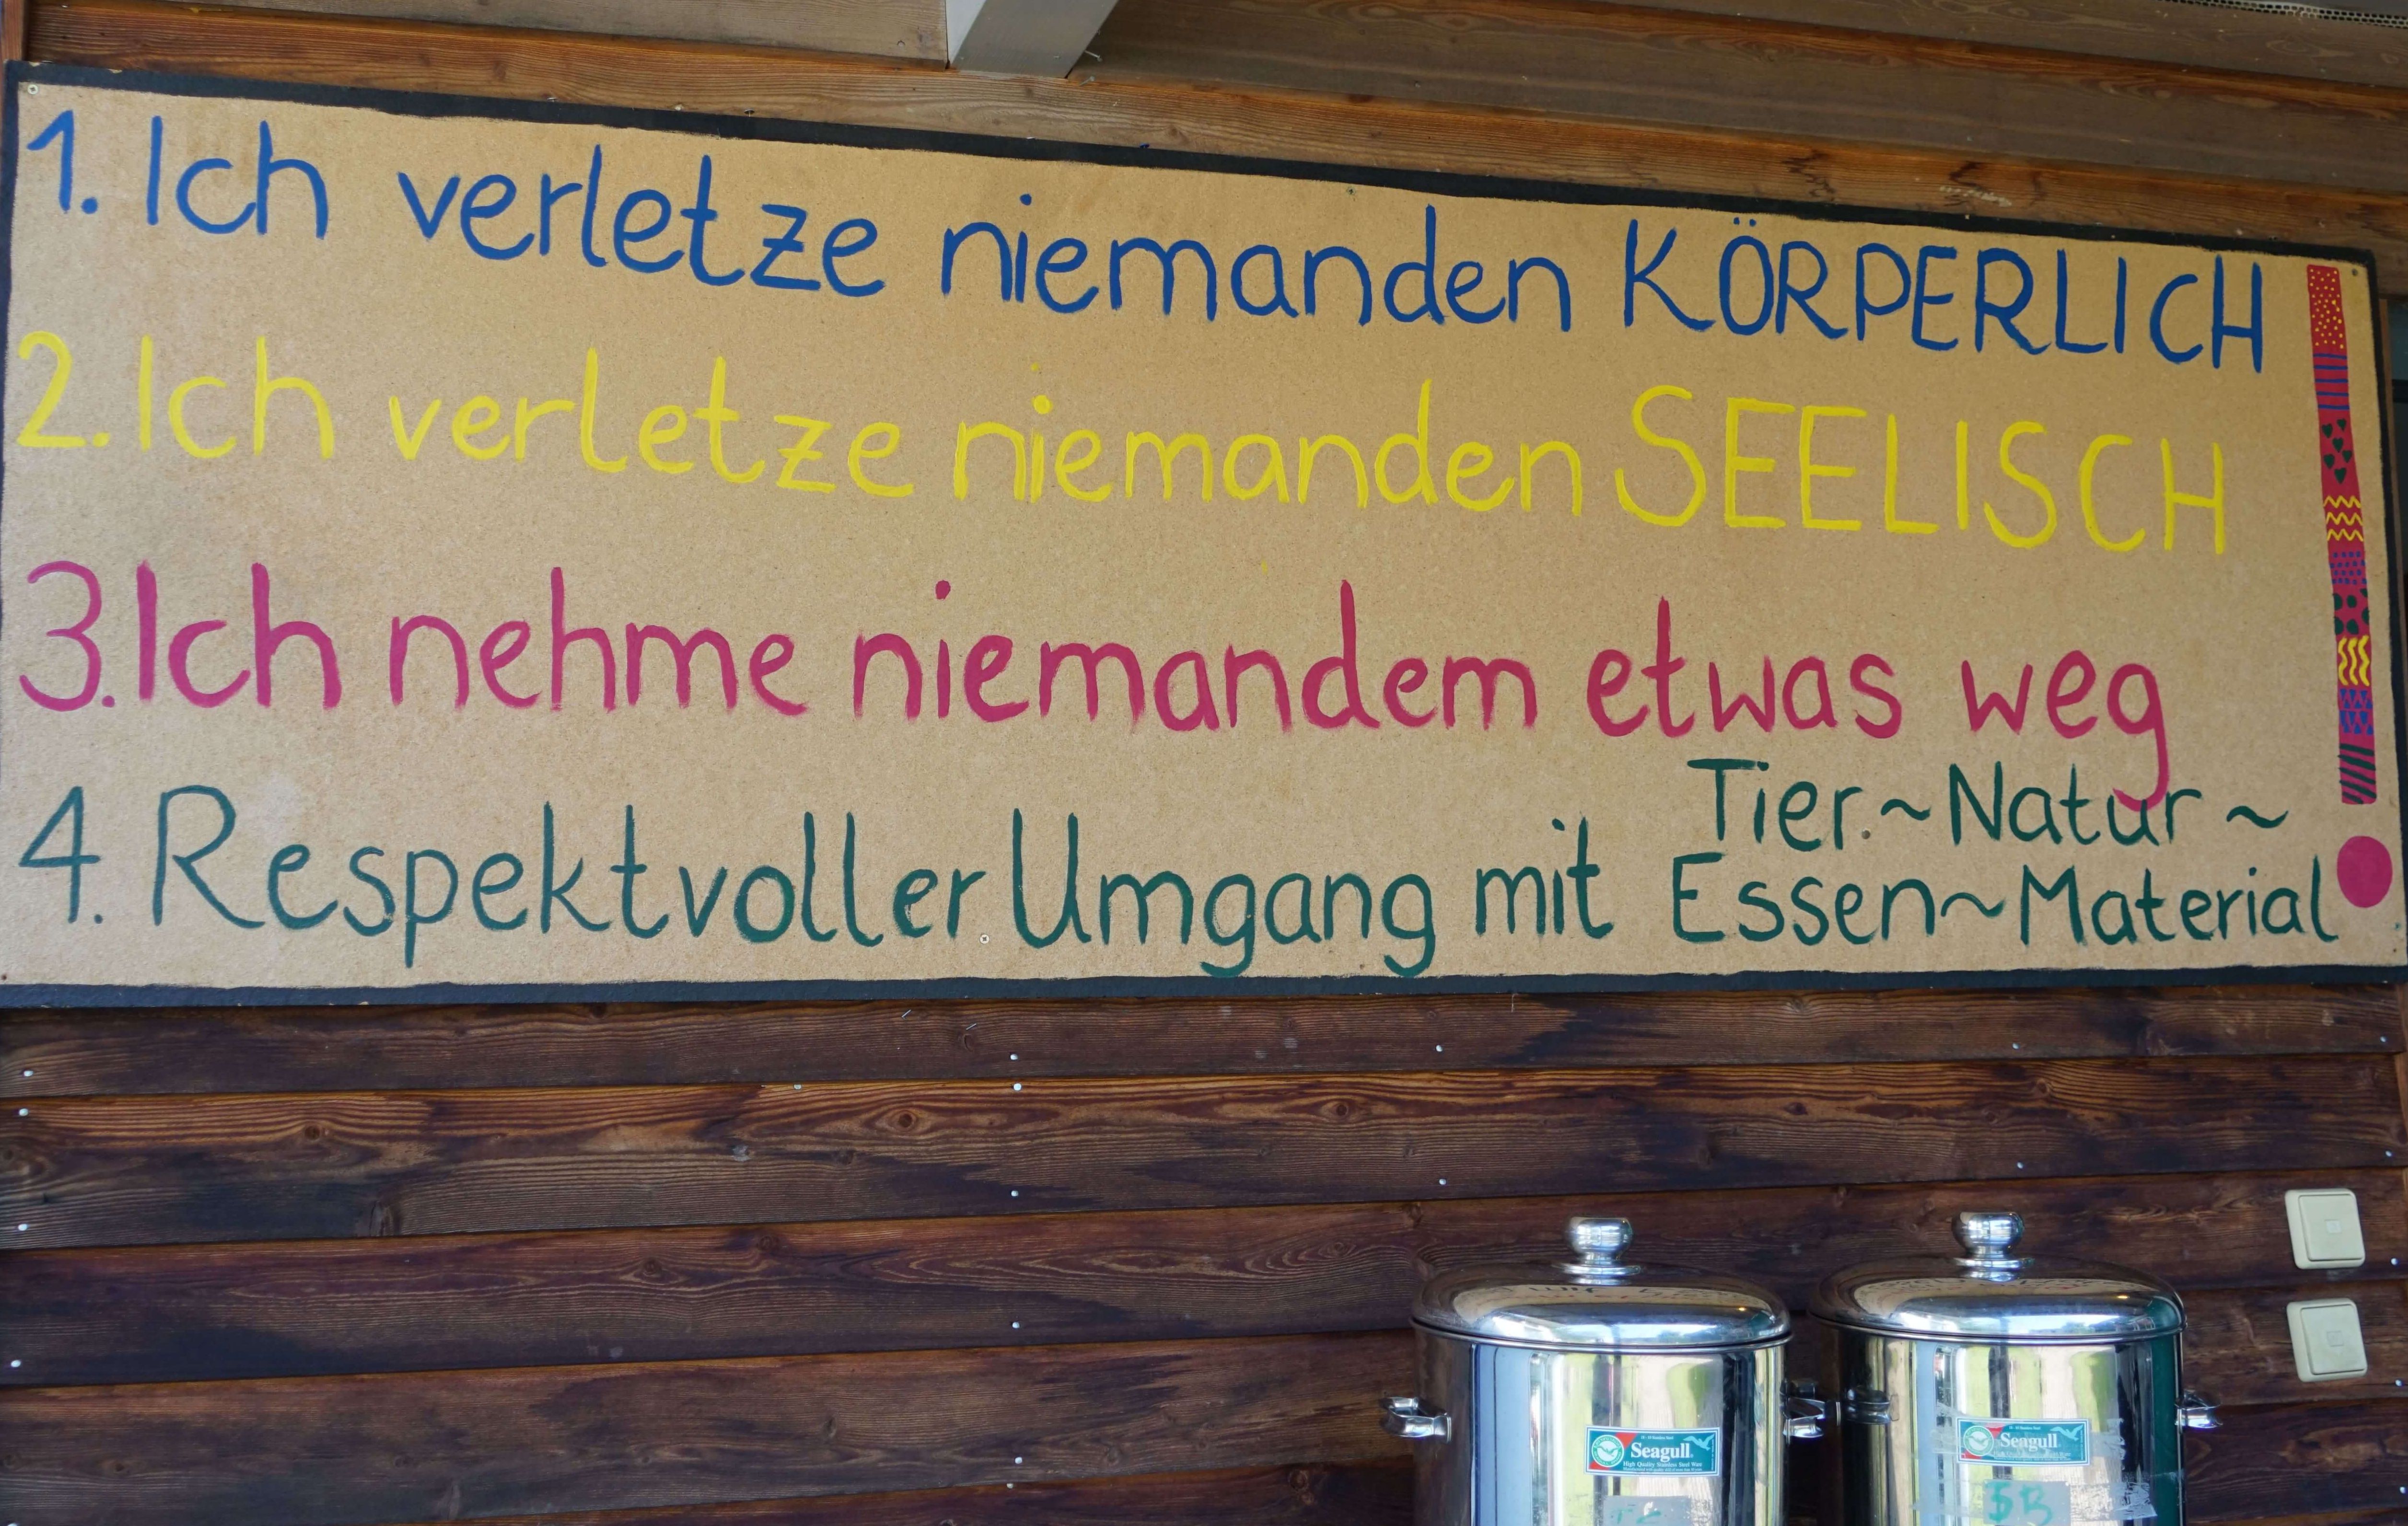 1. Ich verletze niemanden KÖRPERLICH
2. Ich verletze niemanden SEELISCH
3. Ich nehme niemandem etwas weg
4. Respektvoller Umgang mit Tier~Natur~
Essen~Material
Seagull
High Quality Stainless Steel Wax
Seagull